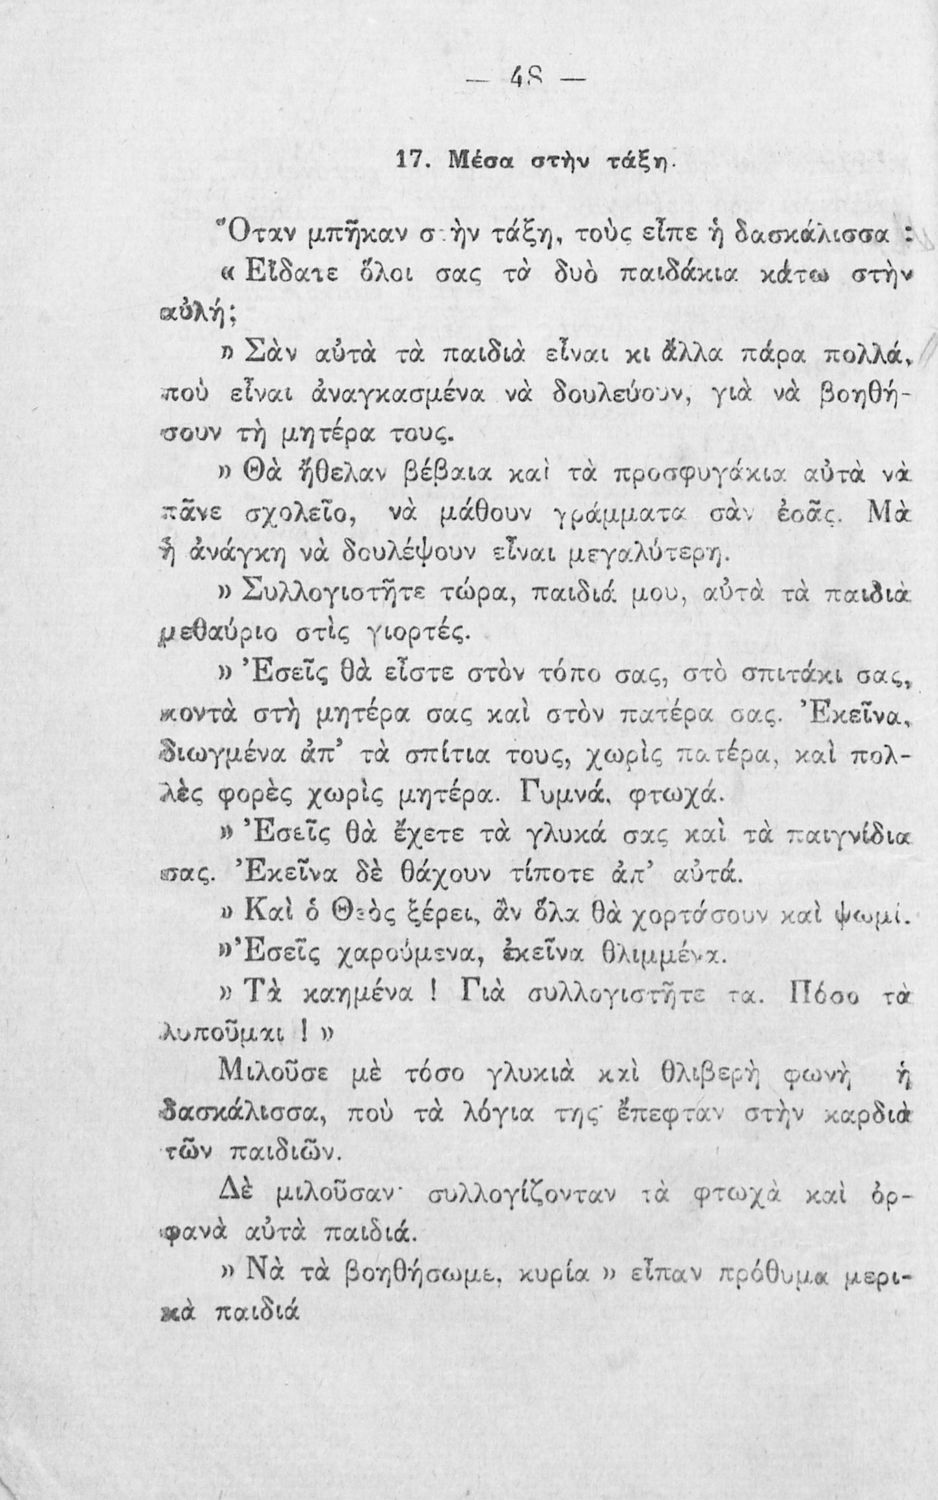 — 48 —
17. Μέσα στὴν τάξη.
Ὅταν μπῆκαν στὴν τάξη, τοὺς εἶπε ἡ δασκάλισσα :
« Εἴδατε ὅλοι σας τὰ δυὸ παιδάκια κάτω στὴν
αὐλή;
» Σὰν αὐτὰ τὰ παιδιὰ εἶναι κι ἄλλα πάρα πολλά,
ποὺ εἶναι ἀναγκασμένα νὰ δουλεύουν, γιὰ νὰ βοηθή-
σουν τὴ μητέρα τους.
» Θὰ ἤθελαν βέβαια καὶ τὰ προσφυγάκια αὐτὰ νὰ
πᾶνε σχολεῖο, νὰ μάθουν γράμματα σὰν ἐσᾶς. Μὰ
ἡ ἀνάγκη νὰ δουλέψουν εἶναι μεγαλύτερη.
» Συλλογιστῆτε τώρα, παιδιά μου, αὐτὰ τὰ παιδιὰ
μεθαύριο στὶς γιορτές.
» Ἐσεῖς θὰ εἶστε στὸν τόπο σας, στὸ σπιτάκι σας,
κοντὰ στὴ μητέρα σας καὶ στὸν πατέρα σας. Ἐκεῖνα,
διωγμένα ἀπ’ τὰ σπίτια τους, χωρὶς πατέρα, καὶ πολ-
λὲς φορὲς χωρὶς μητέρα. Γυμνά, φτωχά.
» Ἐσεῖς θὰ ἔχετε τὰ γλυκά σας καὶ τὰ παιγνίδια
σας. Ἐκεῖνα δὲ θάχουν τίποτε ἀπ’ αὐτά.
» Καὶ ὁ Θεὸς ξέρει, ἂν ὅλα θὰ χορτάσουν καὶ ψωμί.
»Ἐσεῖς χαρούμενα, ἐκεῖνα θλιμμένα.
» Τὰ καημένα ! Γιὰ συλλογιστῆτε τα. Πόσο τὰ
λυποῦμαι ! »
Μιλοῦσε μὲ τόσο γλυκιὰ καὶ θλιβερὴ φωνὴ ἡ
δασκάλισσα, ποὺ τὰ λόγια της ἔπεφταν στὴν καρδιὰ
τῶν παιδιῶν.
Δὲ μιλοῦσαν· συλλογίζονταν τὰ φτωχὰ καὶ ὀρ-
φανὰ αὐτὰ παιδιά.
» Νὰ τὰ βοηθήσωμε, κυρία » εἶπαν πρόθυμα μερι-
κὰ παιδιά